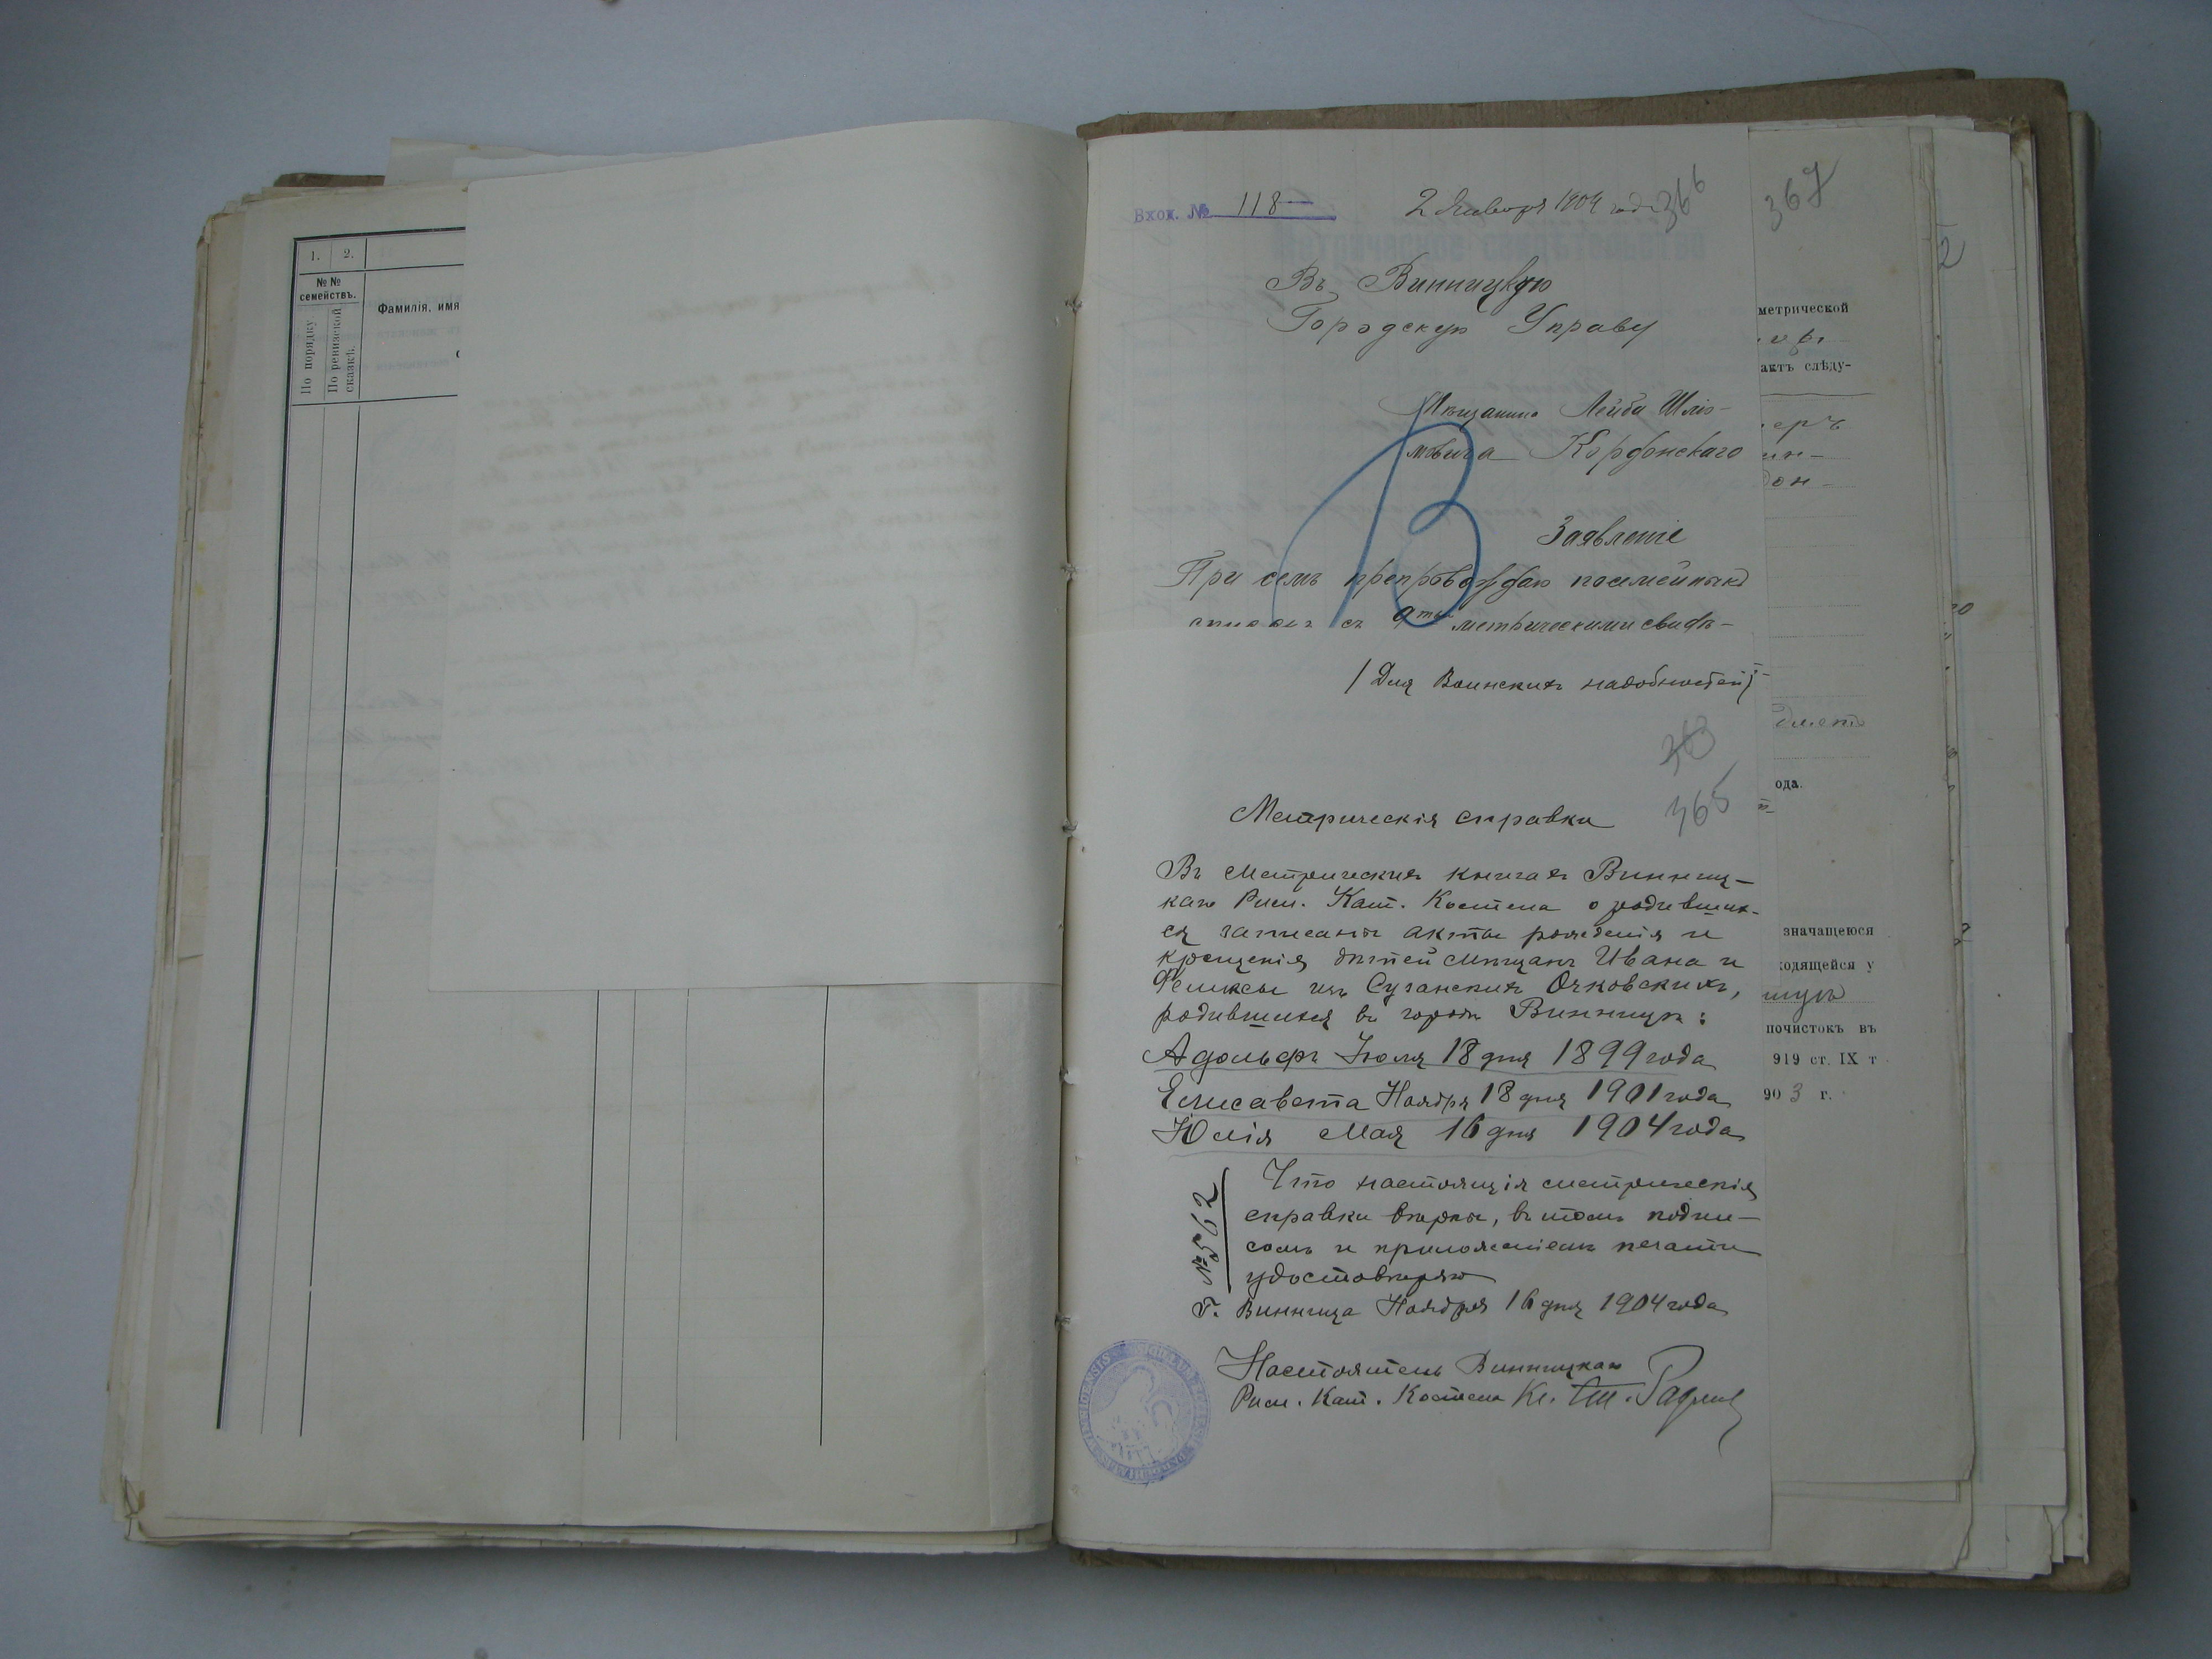 1. 2.
№ №
семействъ.
По порядку
По ревизской
сказкѣ.
Фамилія, имя
Вход. № 118
2 Января 1904 года
366
Въ Винницкую
Городскую Управу
Мѣщанина Лейба Шліо-
мовича Кордонскаго
В
Заявленіе
При семъ препровождаю посемейный
списокъ съ 9тью метрическими свидѣ-
/Для Воинскихъ надобностей/
363
365
Метрическія справки
Въ Метрическихъ книгахъ Винниц-
каго Рим. Кат. Костела о родивших-
ся записаны акты рожденія и
крещенія дѣтей мѣщанъ Ивана и
Феликсы изъ Суганскихъ Очковскихъ,
родившихся въ городѣ Винницѣ:
Адольфъ Іюля 18 дня 1899 года
Елисавета Ноября 18 дня 1901 года
Юлія Мая 16 дня 1904 года
Что настоящія метрическія
справки вѣрны, въ томъ подпи-
сомъ и приложеніемъ печати
удостовѣряю
№ 562
Г. Винница Ноября 16 дня 1904 года
Настоятель Винницкаго
Рим. Кат. Костела Кс.
367
метрической
актъ слѣду-
еръ
ин-
дон-
ода.
значащеюся
ходящейся у
почистокъ въ
919 ст. IX т
903 г.
2